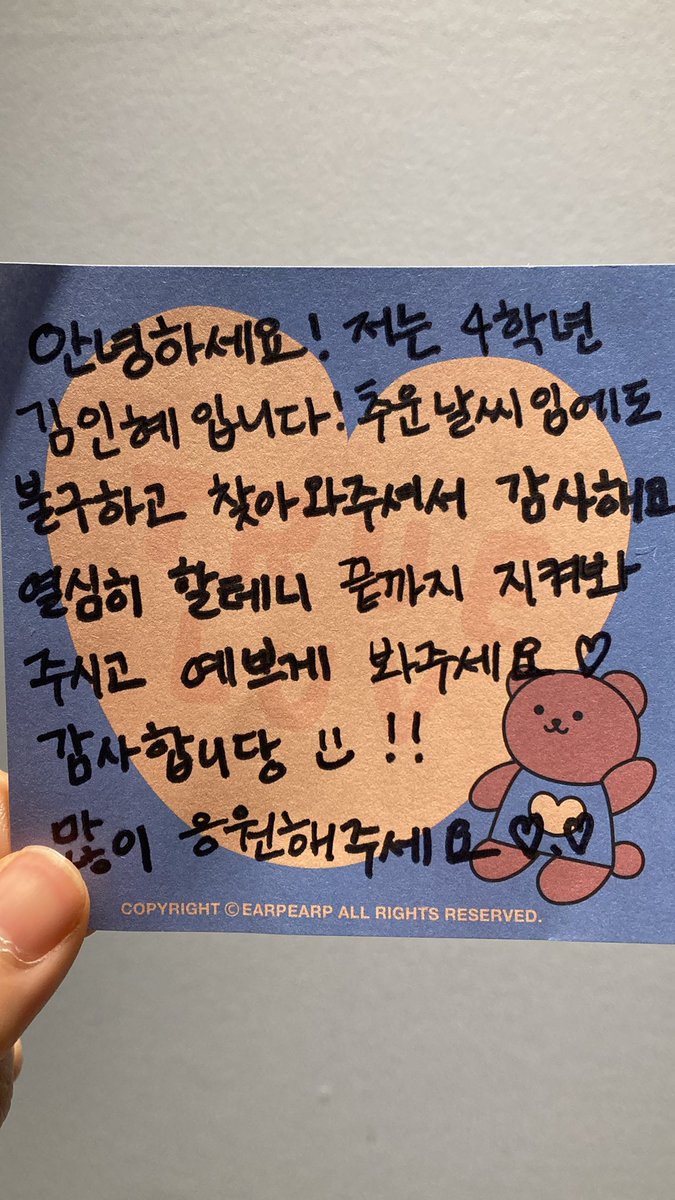 안녕하세요! 저는 4학년
김인혜입니다! 추운날씨임에도
불구하고 찾아와주셔서 감사해요
열심히 할테니 끝까지 지켜봐
주시고 예쁘게 봐주세요 ♡
감사합니당 :) !!
많이 응원해주세요 ♡.♡
COPYRIGHT ©EARPEARP ALL RIGHTS RESERVED.